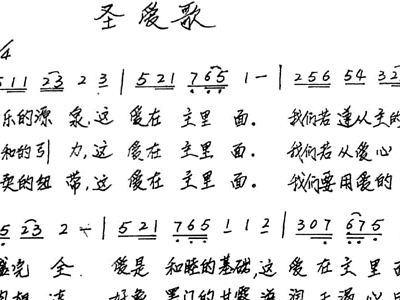 圣爱歌
4
511 23 2 3 | 521 765 1 — | 256 54 32
乐的源 泉,这 爱在 主里 面。 我们若 遵从主的
和的引 力,这 爱在 主里 面。 我们若 从爱心
的纽 带,这 爱在 主里 面。 我们要用爱的
5 23 2 — | 521 765 1 12 | 307 675
完 全. 爱是 和睦的基础,这 爱 在 主里 面